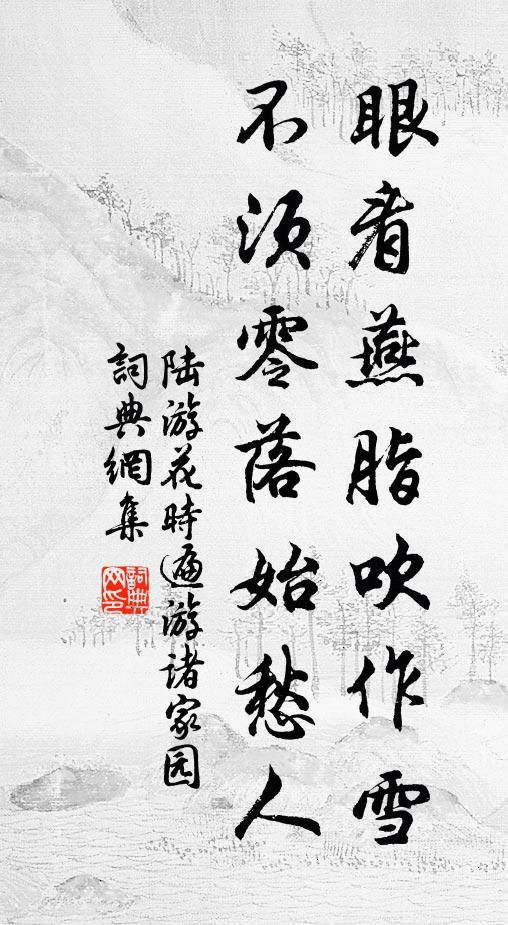 眼看燕脂吹作雪
不须零落始愁人
陆游花时遍游诸家园
詞典網集
詞典
网印